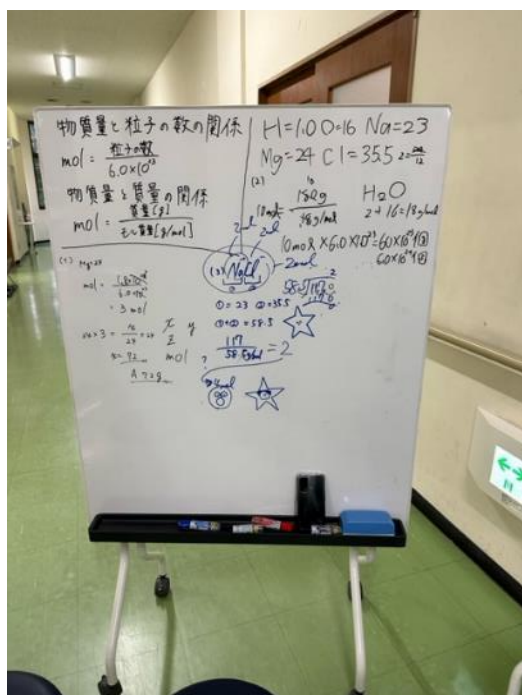 物質量と粒子の数の関係
mol = 粒子の数
6.0×10²³
物質量と質量の関係
mol = 質量[g]
モル質量[g/mol]
H=1.0 O=16 Na=23
Mg=24 Cl=35.5
(2)
180g
18g/mol
H₂O
2+16=18g/mol
10mol×6.0×10²³=60×10²³個
6.0×10²⁴個
(1) Mg=24
mol =
= 3 mol
mol
A 72g
(3) NaCl
2mol
①=23 ②=35.5
①+②=58.5
117
58.5g/mol
=2
4mol